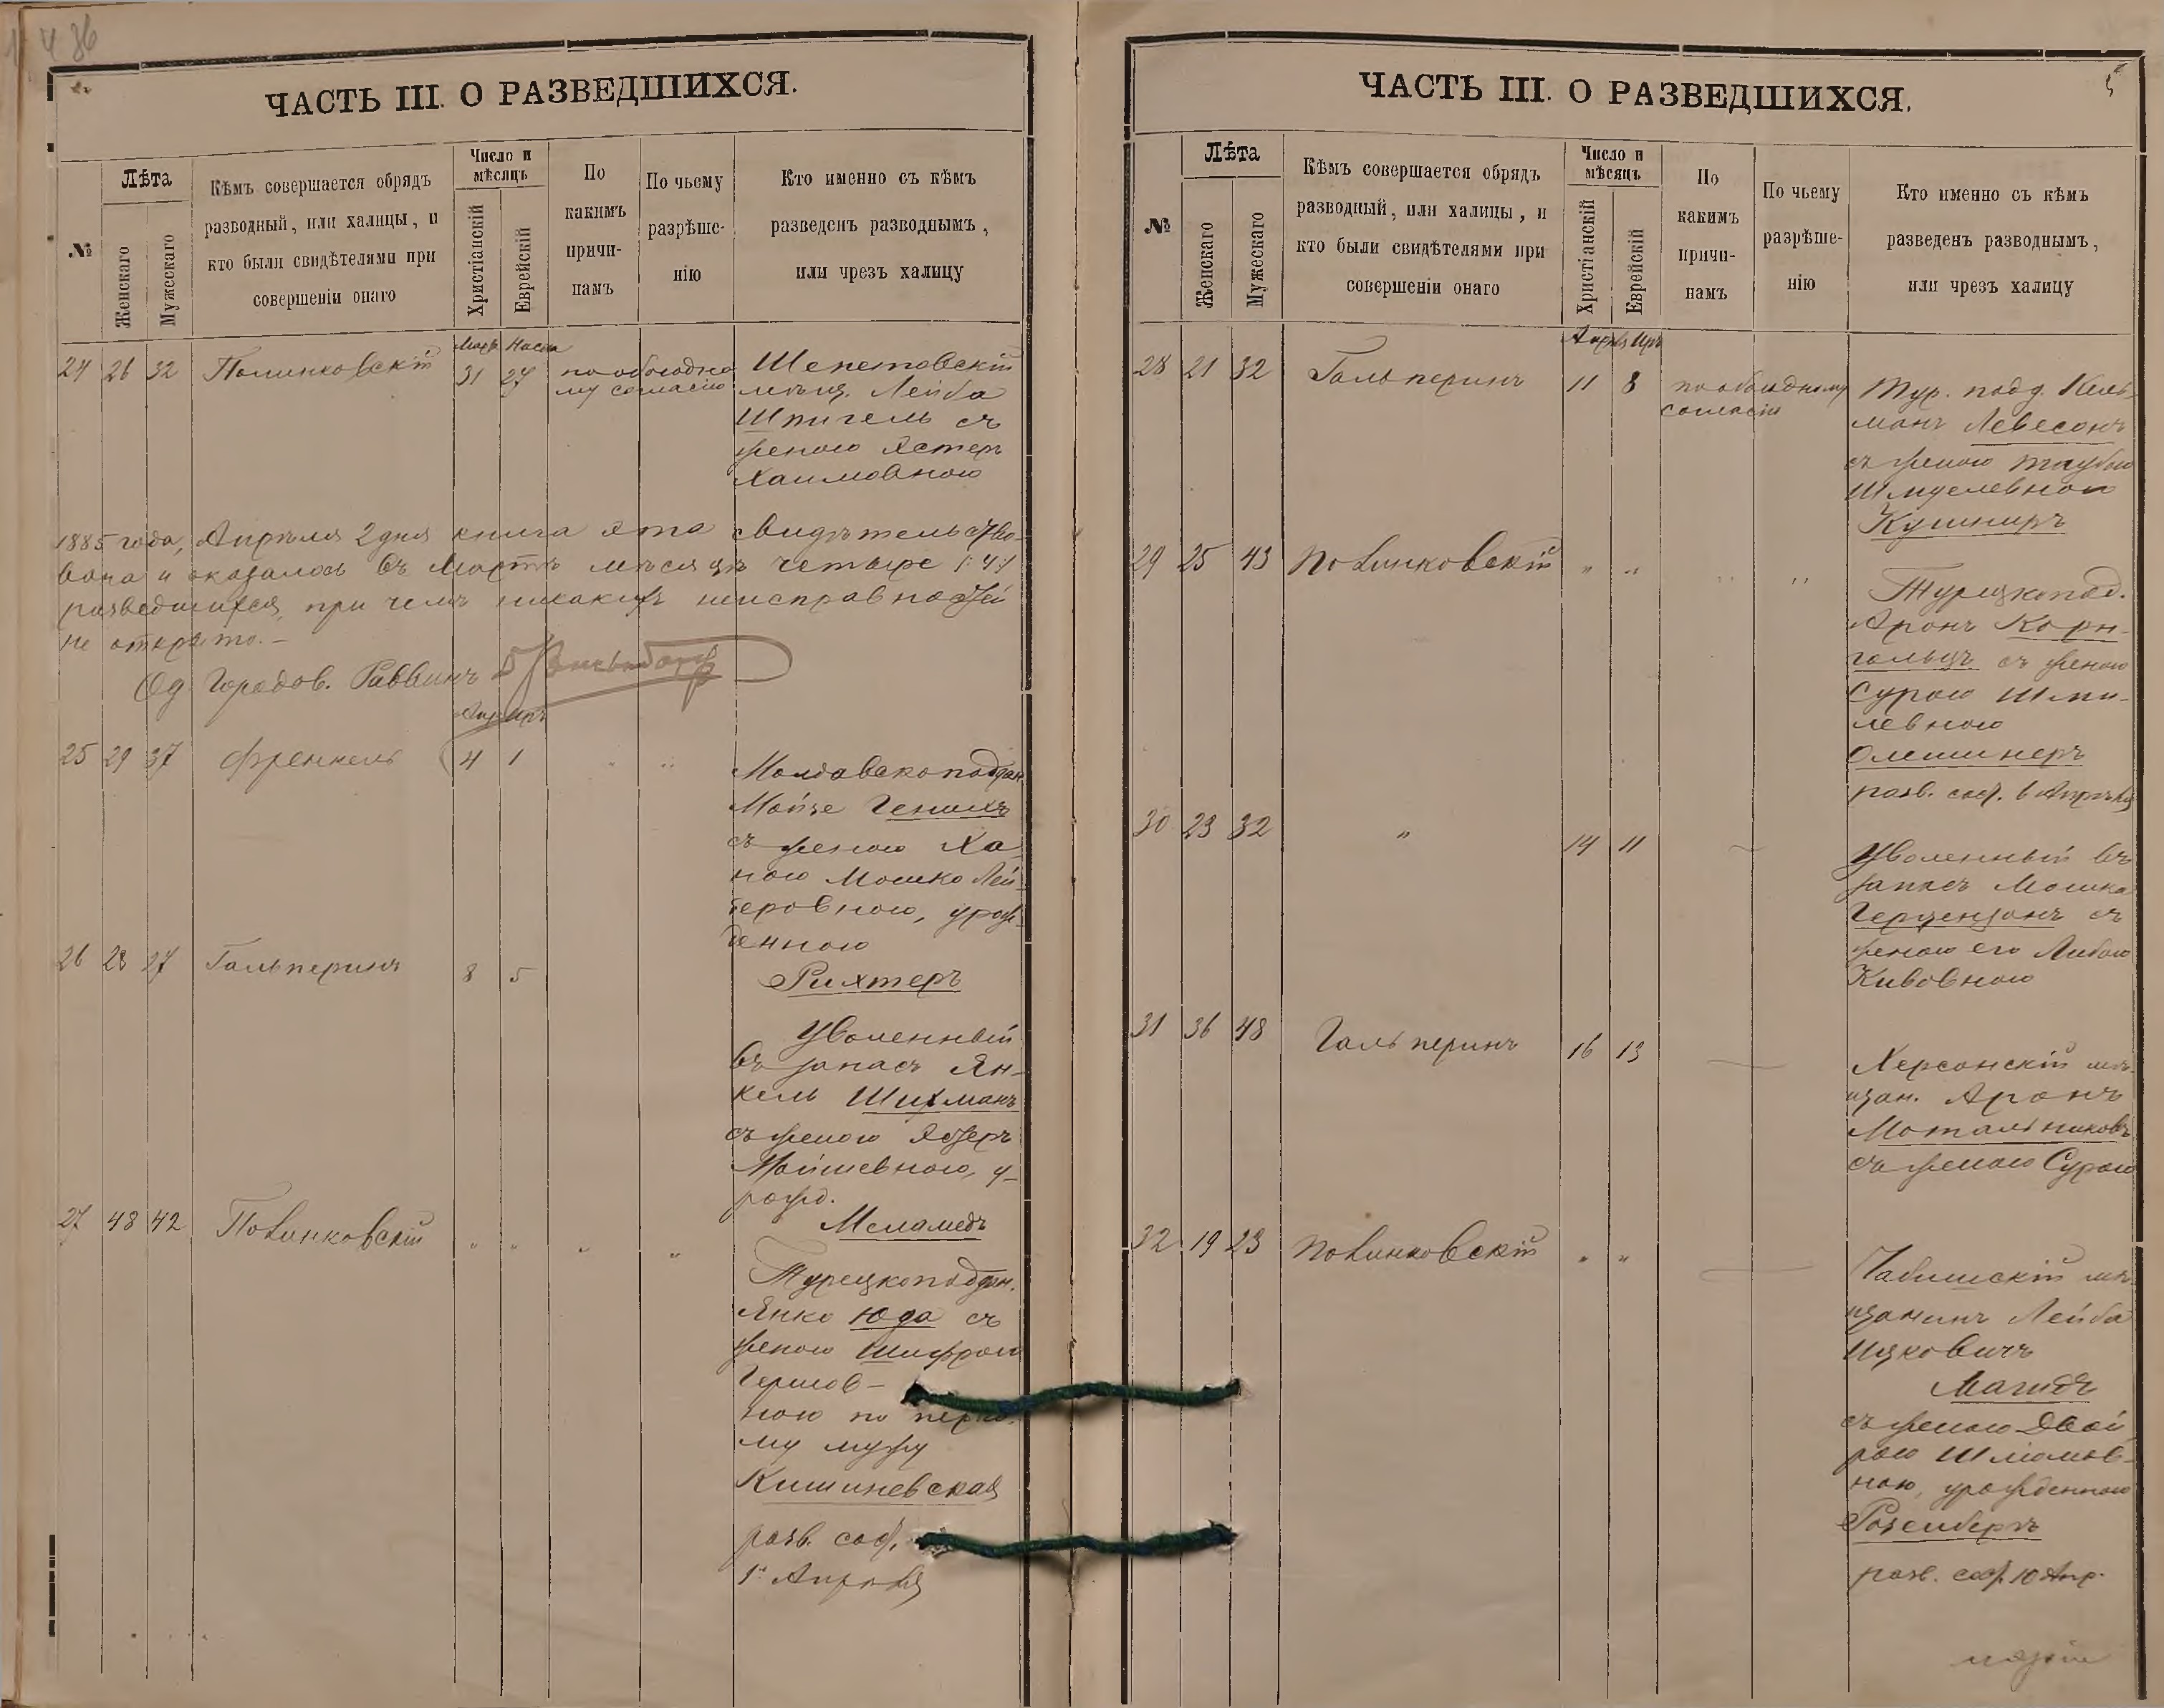 4 36
ЧАСТЬ III. О РАЗВЕДШИХСЯ.
№
Лѣта
Женскаго
Мужескаго
Кѣмъ совершается обрядъ
разводный, или халицы, и
кто были свидѣтелями при
совершеніи онаго
Число и
мѣсяцъ
Христіанскій
Еврейскій
По
какимъ
причи-
намъ
По чьему
разрѣше-
нію
Кто именно съ кѣмъ
разведенъ разводнымъ,
или чрезъ халицу
24 26 32 Полинковскій
31 27
по обоюдно
му согласію
Шепетовскій
мѣщ. Лейба
Шпигель съ
женою Эстеръ
Хаимовною
1885 года, Апрѣля 2 дня книга эта свидѣтельство-
вана и оказалось въ Мартѣ мѣсяцѣ четыре /:4:/
разведшихся, при чемъ никакихъ неисправностей
не открыто. –
Од Городов. Раввинъ
25 29 37 Френкель 4 1 " "
Молдавскоподдан.
Мойше Генихъ
съ женою Ха-
ною Мошко Лей-
зеровною, урож-
денною
Рихтеръ
26 28 27 Гальперинъ 8 5
Уволенный
въ запасъ Ян-
кель Шихманъ
съ женою Эстеръ
Мойшевною, у-
рожд.
Меламедъ
27 48 42 Полинковскій " " " "
Турецкоподдан.
Янко Юда съ
женою Шифрою
Гершов-
ною по перво-
му мужу
Кишиневская
разв. сос.
1го Апрѣля
ЧАСТЬ III. О РАЗВЕДШИХСЯ.
5
№
Лѣта
Женскаго
Мужескаго
Кѣмъ совершается обрядъ
разводный, или халицы, и
кто были свидѣтелями при
совершеніи онаго
Число и
мѣсяцъ
Христіанскій
Еврейскій
По
какимъ
причи-
намъ
По чьему
разрѣше-
нію
Кто именно съ кѣмъ
разведенъ разводнымъ,
или чрезъ халицу
28 21 32 Гальперинъ 11 8
по обоюдному
согласію
Тур. подд. Кель-
манъ Левесонъ
съ женою Таубою
Шмулевною
Кушниръ
29 25 43 Полинковскій " " " "
Турецкопод.
Аронъ Корн-
гольцъ съ женою
Сурою Шми-
левною
Олешнеръ
разв. сос. в Апрѣля
30 23 32 " 14 11 –
Уволенный въ
запасъ Мошка
Герцензонъ съ
женою его Либою
Кивовною
31 36 48 Гальперинъ 16 13 –
Херсонскій мѣ-
щан. Аронъ
Мотальниковъ
съ женою Сурою
32 19 23 Полинковскій " " –
мѣ-
щанинъ Лейба
Ицковичъ
Магидъ
съ женою Двой-
рою Шлиомов-
ною, урожденною
Розенбергъ
разв. сос. 10 Апр.